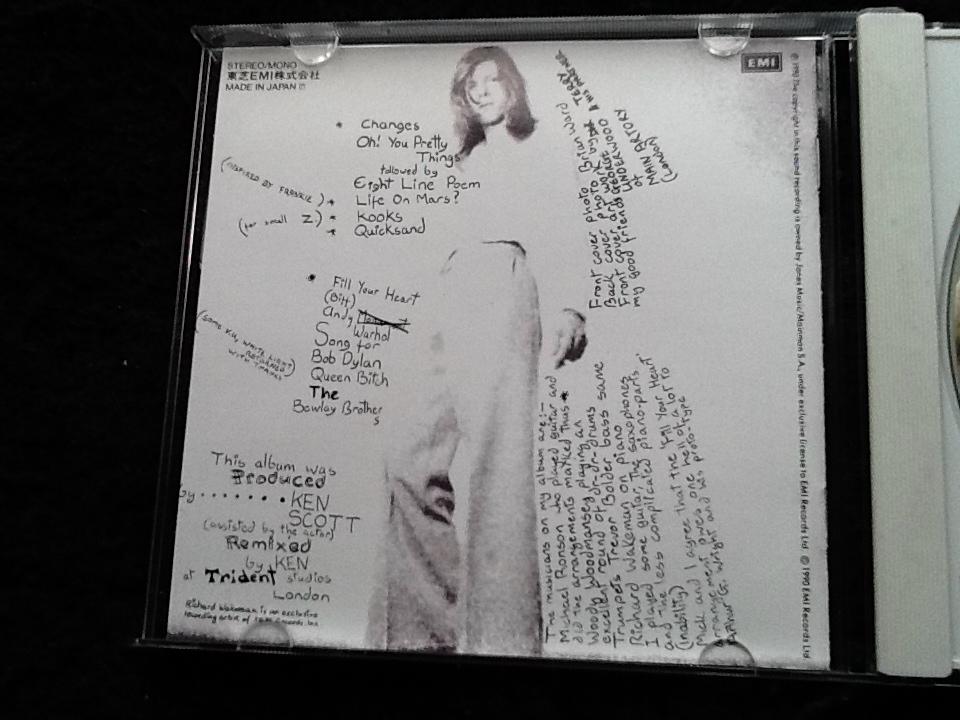 STEREO/MONO
東芝EMI株式会社
MADE IN JAPAN
EMI
* Changes
Oh! You Pretty
Things
followed by
Eight Line Poem
(INSPIRED BY FRANKIE) * Life On Mars?
(for small Z.) * Kooks
* Quicksand
* Fill Your Heart
(Bitt)
Andy
Warhol
Song for
Bob Dylan
(SOME V.U. WHITE LIGHT
RETURNED
WITH THANKS)
Queen Bitch
The
Bewlay Brother
s
This album was
Produced
by ........ KEN
SCOTT
(assisted by the actor)
Remixed
by KEN
at Trident studios
London
Richard Wakeman is an exclusive
recording artist of
Front cover photo Brian Ward
Back cover photo by
Front cover art work by TERRY
& HIS PARTNER
my good friends GEORGE UNDERWOOD
of
MAIN ARTORY
(LONDON)
The musicians on my album are:-
Michael Ronson who played guitar and
did the arrangements marked thus *
Woody Woodmansey playing an
excellent round of dr-dr-drums
Trevor Bolder bass some
Trumpets
Richard Wakeman on piano
I played some guitar, the saxophones
and the less complicated piano-parts.
(inability)
Mick and I agree that the 'Fill Your Heart'
arrangement owes one hell of a lot to
Arthur G. Wright and his proto-type
℗ 1990 The copyright in this sound recording is owned by Jones Music/Mainman S.A., under exclusive license to EMI Records Ltd © 1990 EMI Records Ltd